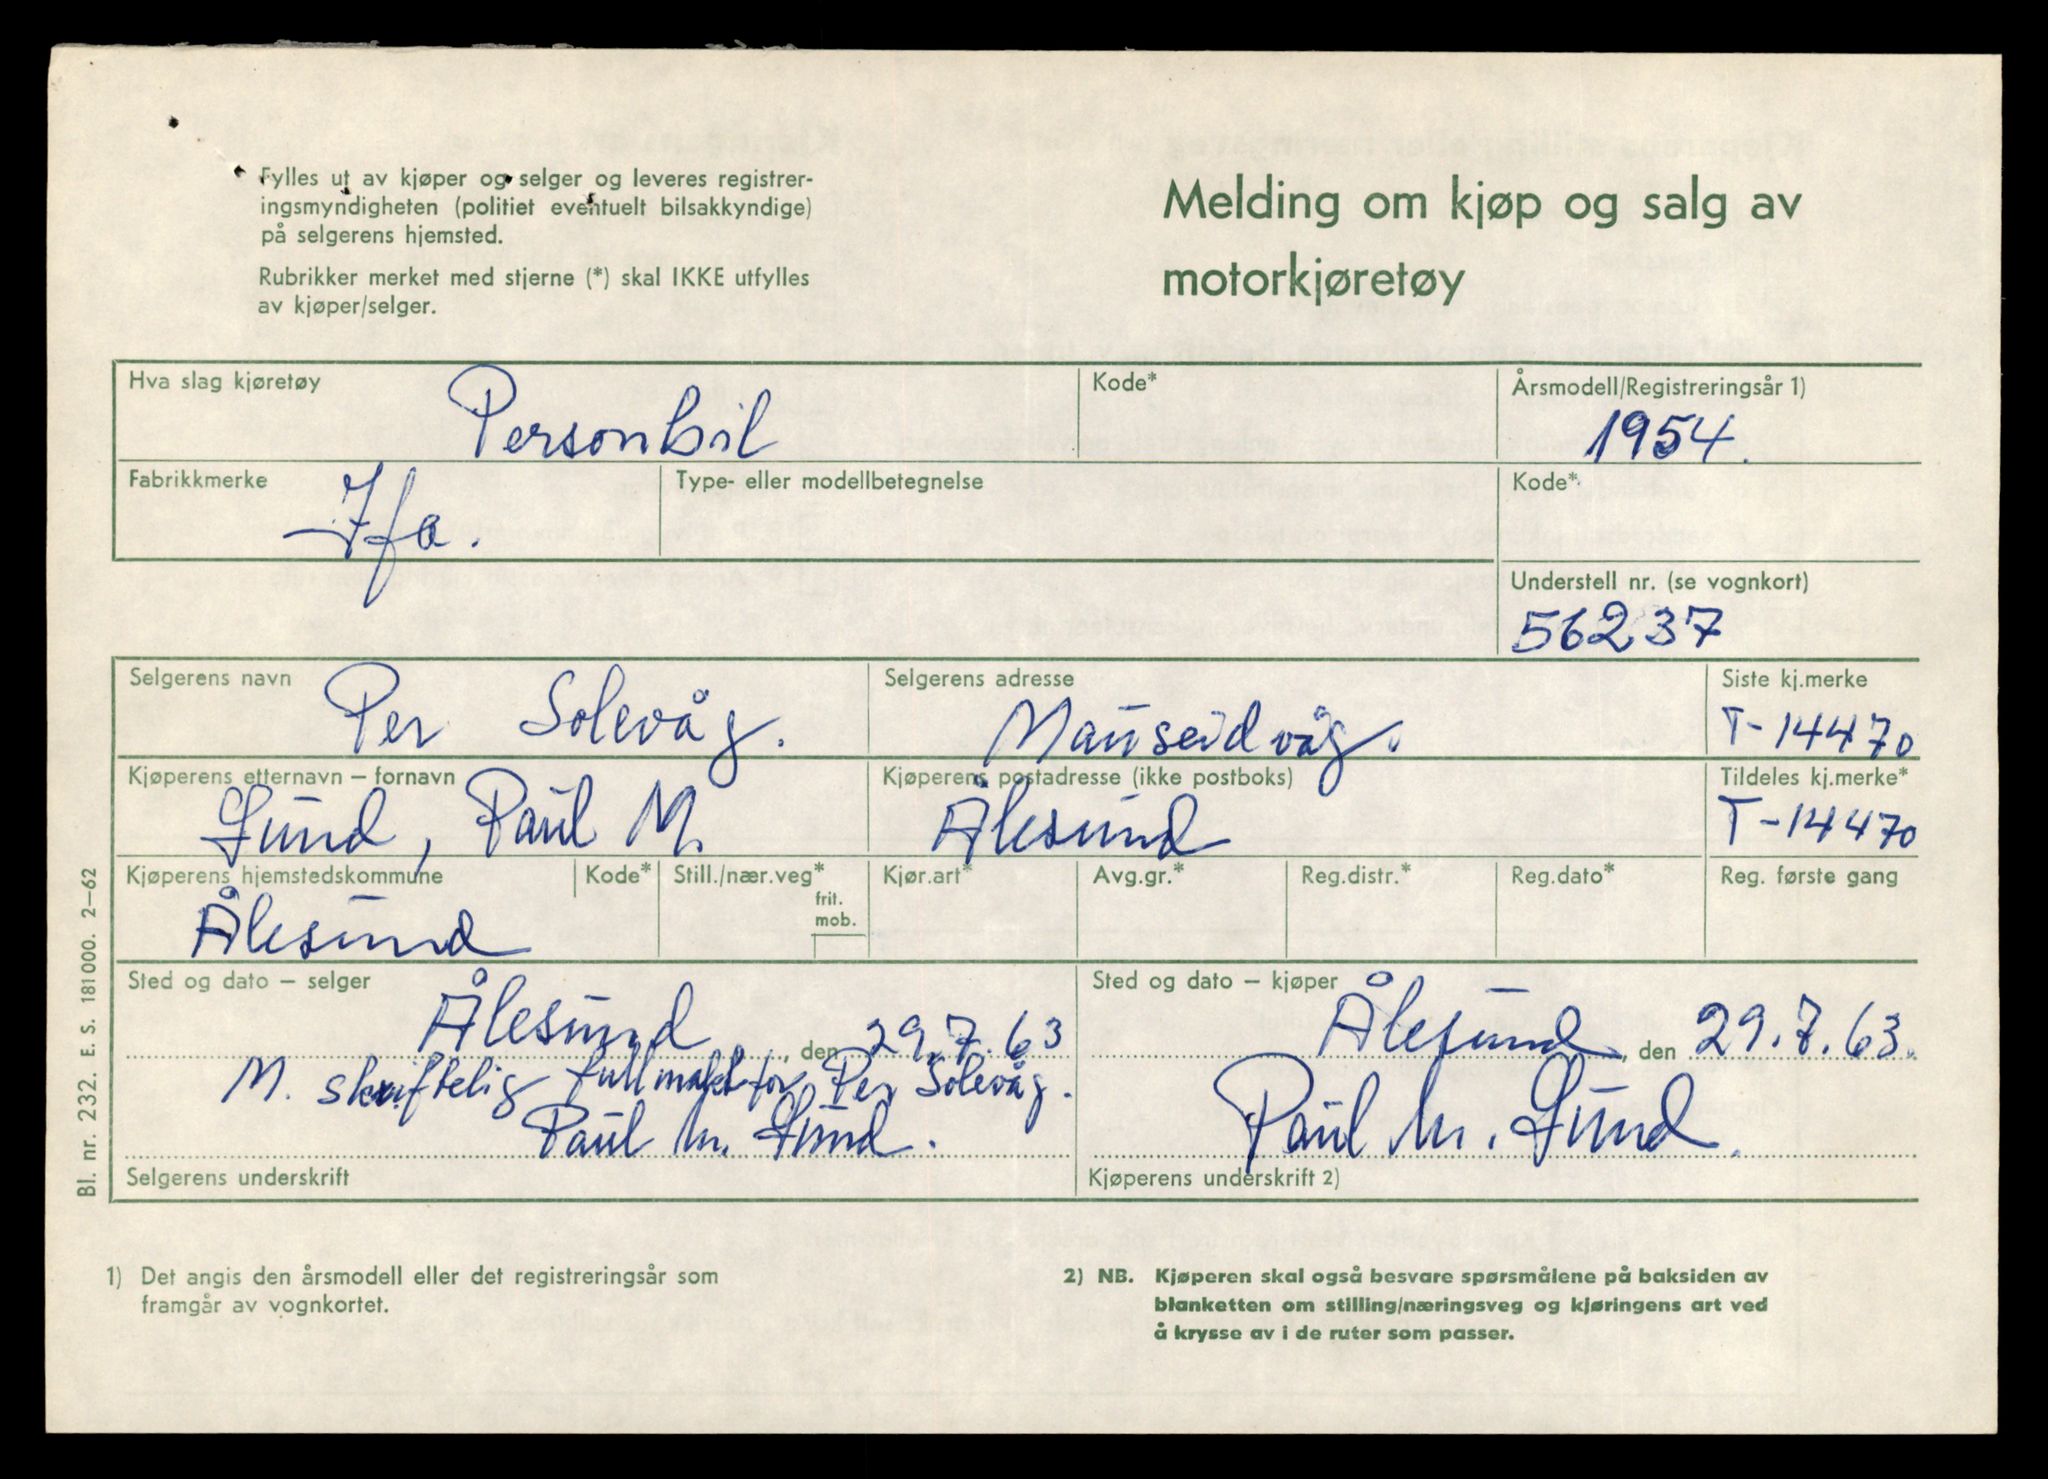 Fylles ut av kjøper og selger og leveres registrer-
ingsmyndigheten (politiet eventuelt bilsakkyndige)
på selgerens hjemsted.
Rubrikker merket med stjerne (*) skal IKKE utfylles
av kjøper/selger.
Melding om kjøp og salg av
motorkjøretøy
Hva slag kjøretøy
Personbil
Kode*
Årsmodell/Registreringsår 1)
1954.
Fabrikkmerke
Ifa.
Type- eller modellbetegnelse
Kode*
Understell nr. (se vognkort)
56237
Selgerens navn
Per Solevåg.
Selgerens adresse
Mauseidvåg.
Siste kj.merke
T-14470
Kjøperens etternavn – fornavn
Lund, Paul M.
Kjøperens postadresse (ikke postboks)
Ålesund
Tildeles kj.merke*
T-14470
Kjøperens hjemstedskommune
Ålesund
Kode*
Still./nær.veg*
frit.
mob.
Kjør.art*
Avg.gr.*
Reg.distr.*
Reg.dato*
Reg. første gang
Sted og dato – selger
Ålesund, den 29.7.63
M. skriftelig fullmakt for Per Solevåg.
Paul M. Lund.
Selgerens underskrift
Sted og dato – kjøper
Ålesund, den 29.7.63.
Paul M. Lund.
Kjøperens underskrift 2)
Bl. nr. 232. E. S. 181000. 2–62
1) Det angis den årsmodell eller det registreringsår som
framgår av vognkortet.
2) NB. Kjøperen skal også besvare spørsmålene på baksiden av
blanketten om stilling/næringsveg og kjøringens art ved
å krysse av i de ruter som passer.